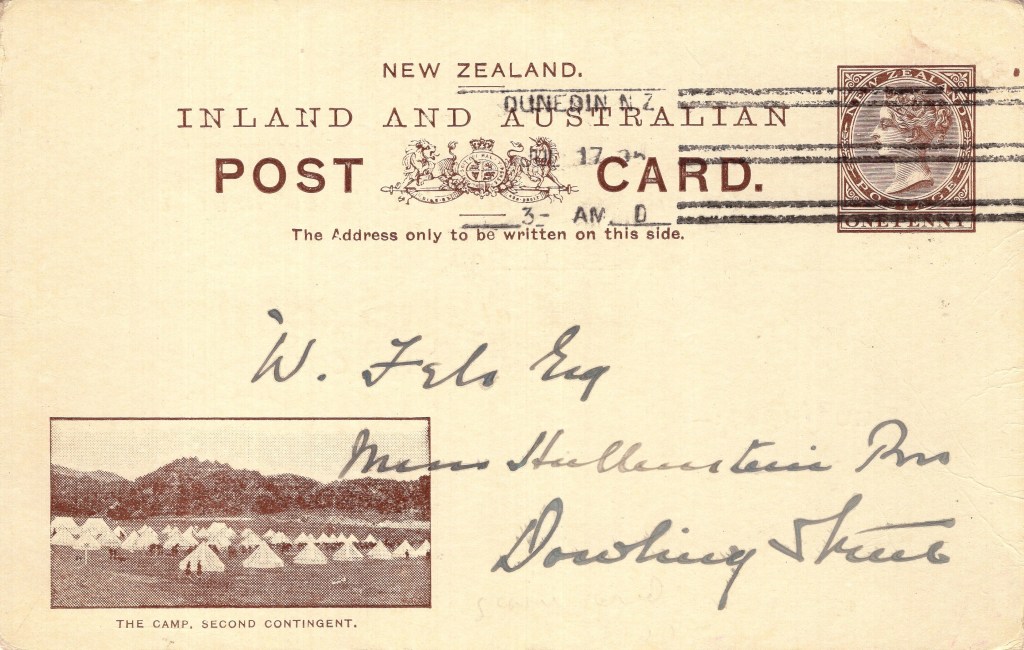 NEW ZEALAND.
INLAND AND AUSTRALIAN
POST CARD.
The Address only to be written on this side.
DUNEDIN N.Z
17
3- AM D
NEW ZEALAND
POSTAGE
ONE PENNY
W. Fels Esq
Messrs Hallenstein Bros
Dowling Street
THE CAMP, SECOND CONTINGENT.